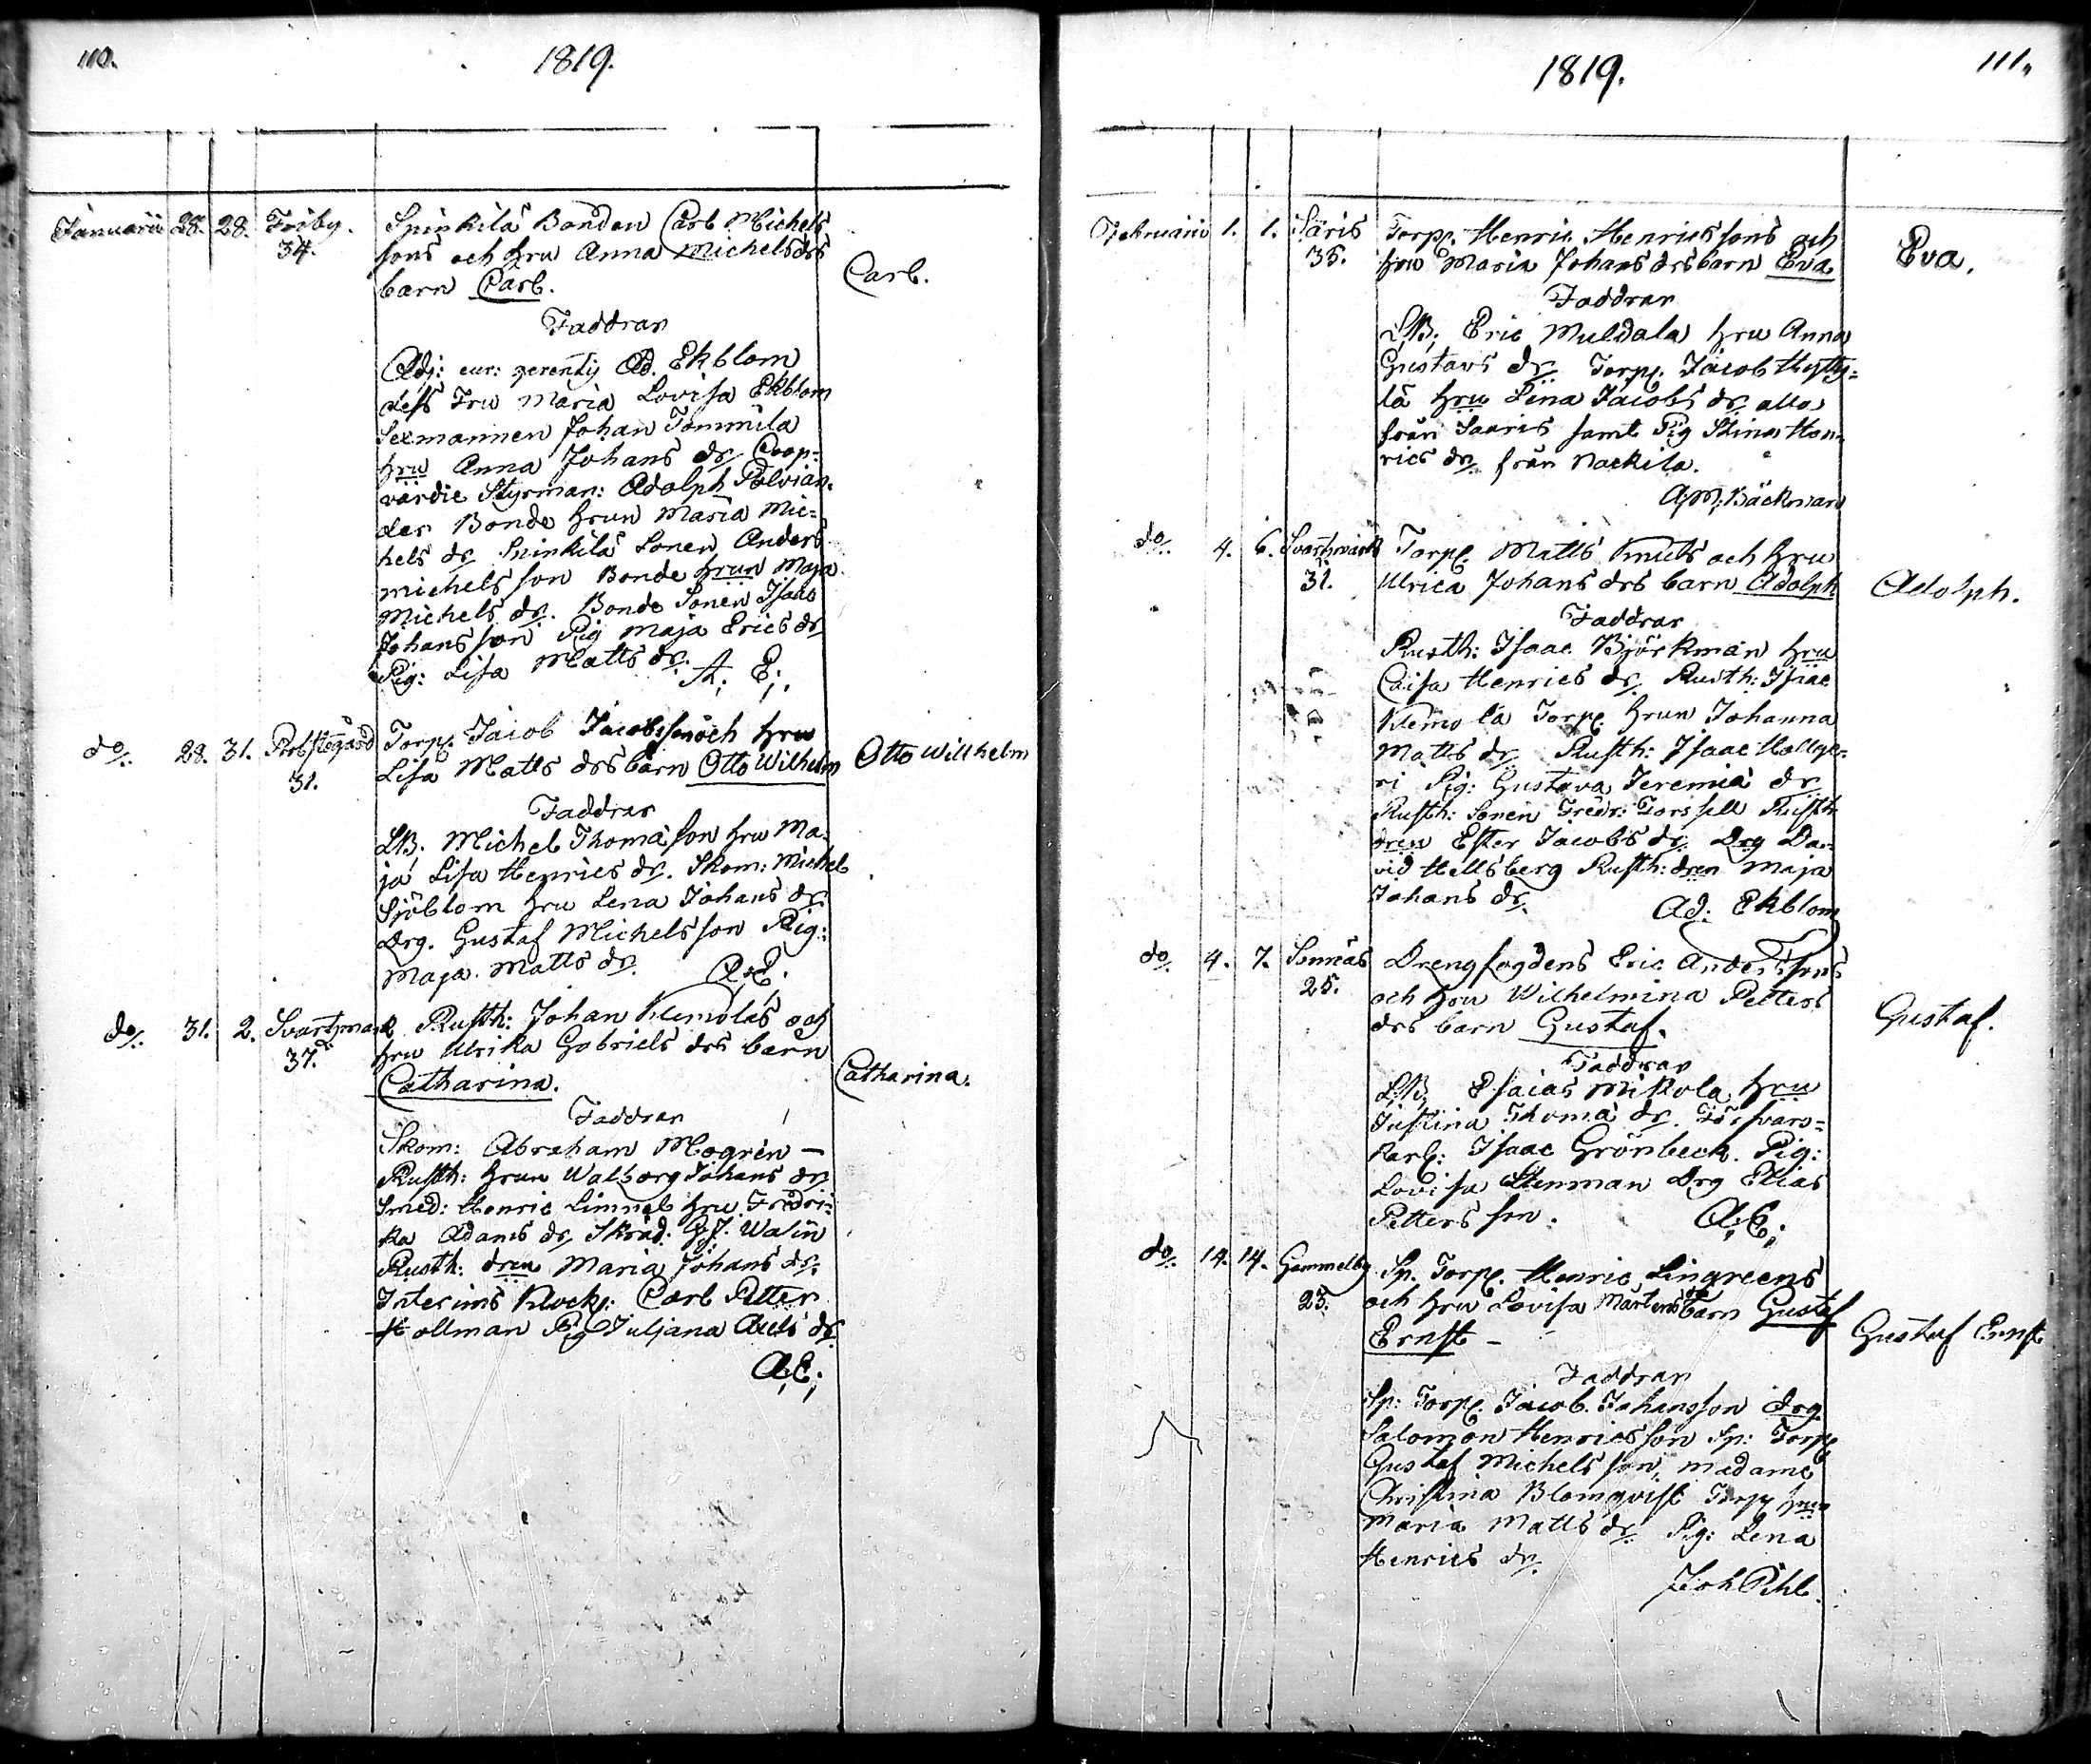 110.
1819.
Januarii 28. 28. Friby. 34.
Spinkilä Bonden Carl Michels
sons och hru Anna Michelsdrs
barn Carl.
Carl.
Faddrar
Adj: cur: gerentij Ad. Ekblom
dess Fru Maria Lovisa Ekblom
Sexmannen Johan Tommila
hru Anna Johans dr Coop-
värdie Styrman: Adolph Polvian-
der Bonde hrun Maria Mic-
hels dr Spinkilä Sonen Anders
Michels son Bonde hrun Maja
Michels dr. Bonde Sonen Isaac
Johans son Pig Maja Erics dr
Pig: Lisa Matts dr. A. E.
do. 28. 31. Probstegård 31.
Torp. Jacob Jacobsson och hru
Lisa Matts drs barn Otto Wilhelm
Otto Willhelm
Faddrar
LB. Michel Thomæson hru Ma-
ja Lisa Henrics dr. Skom: Michel
Sjöblom hru Lena Johans dr.
Drg. Gustaf Michelsson Pig:
Maja Matts dr. A:E.
do. 31. 2. Svartzmark 37.
Rusth: Johan Klemolas och
hru Ulrika Gabriels drs barn
Catharina.
Catharina.
Faddrar
Skom: Abraham Mogren —
Rusth: hrun Walborg Johans dr
Smed: Henric Limnel hru Fredri-
ka Adams dr, Skräd: G.J. Walin
Rusth: dren Maria Johans dr.
Interims Klock: Carl Petter
Hollman Pig Juljana Axels dr
A:E;
1819.
111.
Februarii 1. 1. Säris 35.
Torp. Henric Henricssons och
hru Maria Johans drs barn Eva
Eva.
Faddrar
LB; Eric Muldala hru Anna
Gustavs dr Torp. Jacob Hyty-
lä hru Lena Jacobs dr alla
från Saaris samt Pig Stina Hen-
rics dr från Nackila.
A:M: Bäckman
do. 4. 6. Svartzmark 31.
Torp Matts Knuts och hru
Ulrica Johans drs barn Adolph
Adolph.
Faddrar
Rusth: Isaac Björkman hru
Caisa Henrics dr Rusth: Isaac
Klemola Torp. hrun Johanna
Matts dr Rusth: Isaac Hallge-
ri Pig: Gustava Jeremiæ dr
Rusth: Sonen Fredr: Forssell Rusth
dren Ester Jacobs dr Drg Da-
vid Hellsberg Rusth: dren Maja
Johans dr. Ad: Ekblom
do. 4. 7. Sonnäs 25.
Drengfogdens Eric Anderssons
och hru Wilhelmina Petters
drs barn Gustaf.
Gustaf.
Faddrar
LB, Esaias Mikola hru
Justina Thomæ dr. Försvars-
karl: Isaac Grönbeck. Pig:
Lovisa Stenman Drg Elias
Petters son. A:E;
do. 14. 14. Gammelby 25.
Sp. Torp. Henric Lingreens
och hru Lovisa Mårtens drs barn Gustaf
Ernst —
Gustaf Ernst
Faddrar
Sp: Torp. Jacob Johansson Drg
Salomon Henricsson Sp: Torp
Gustaf Michels son, Madame
Christina Blomqvist Torp hrun
Maria Matts dr Pig: Lena
Henrics dr.
Joh Pihl.